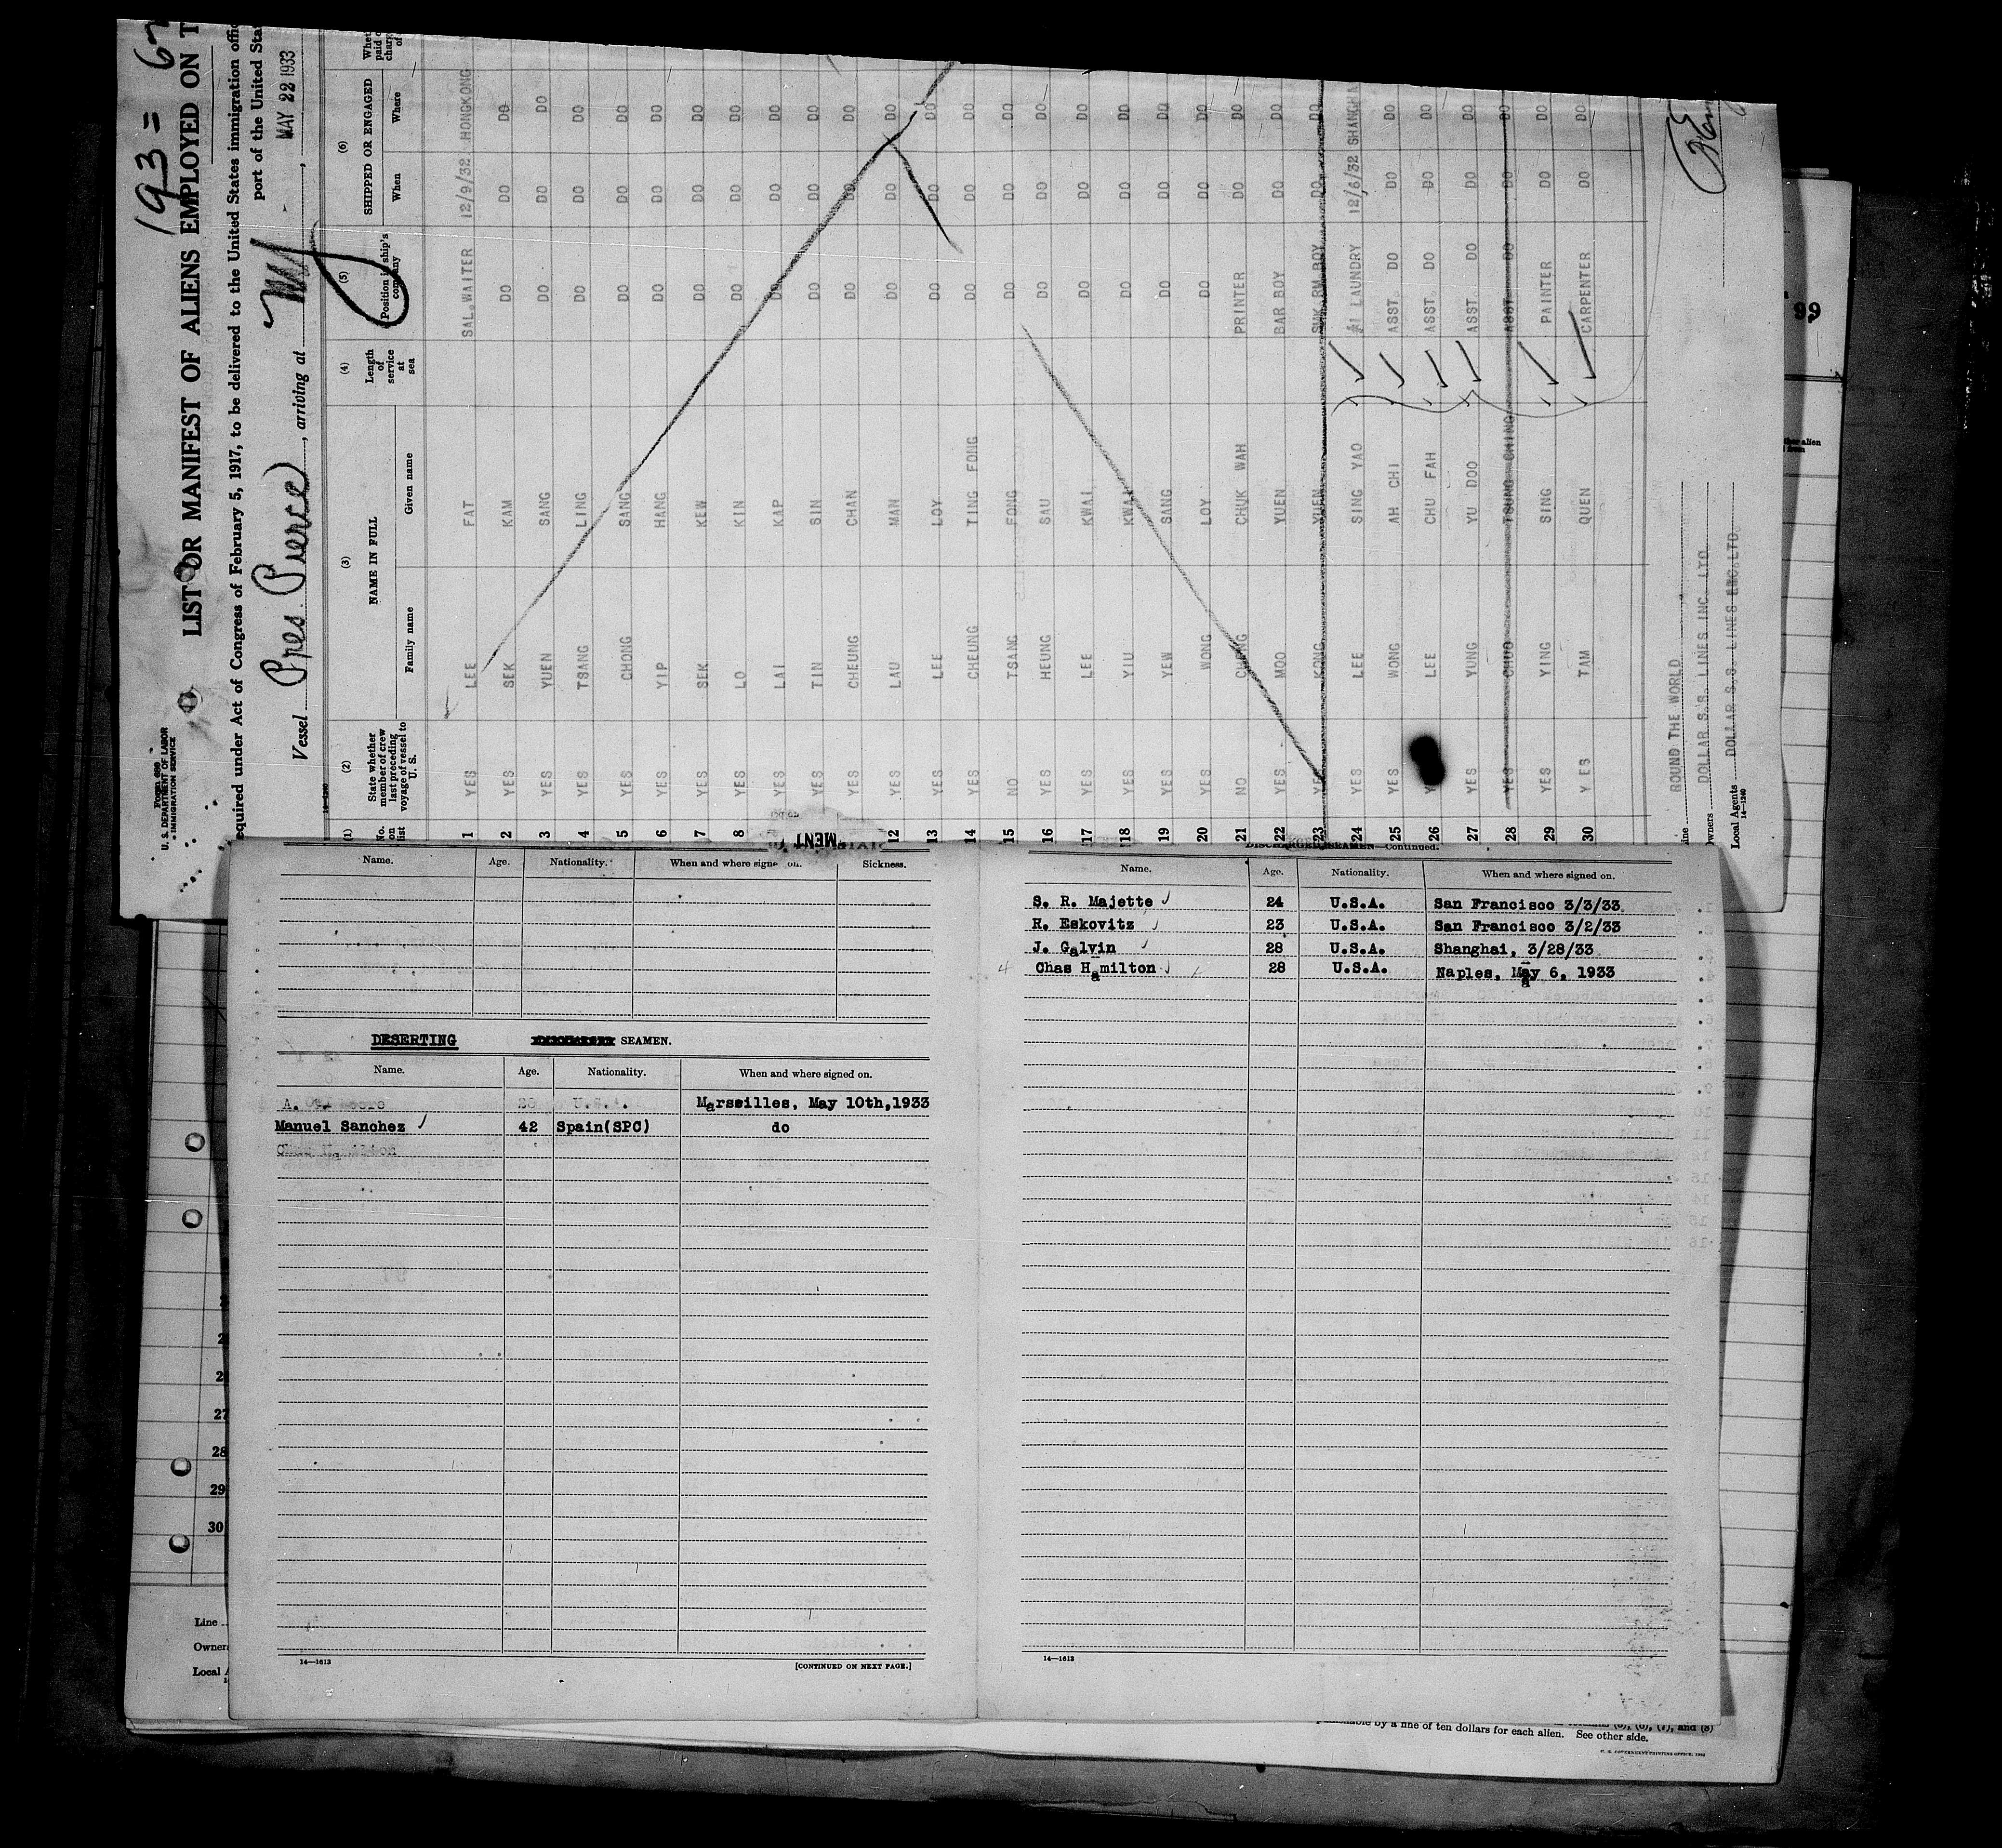 193 = 6
Form 680
U. S. DEPARTMENT OF LABOR
IMMIGRATION SERVICE
LIST OR MANIFEST OF ALIENS EMPLOYED ON T
equired under Act of Congress of February 5, 1917, to be delivered to the United States immigration offic
port of the United Sta
Vessel Pres. Pierce, arriving at MAY 22 1933
14-1240
(1) (2) (3) (4) (5) (6)
No. on list State whether member of crew last preceding voyage of vessel to U. S. NAME IN FULL Length of service at sea Position in ship's company SHIPPED OR ENGAGED Whet paid o charg of
Family name Given name When Where
1 YES LEE FAT SAL.WAITER 12/9/32 HONGKONG
2 YES SEK KAM DO DO DO
3 YES YUEN SANG DO DO DO
4 YES TSANG LING DO DO DO
5 YES CHONG SANG DO DO DO
6 YES YIP HANG DO DO DO
7 YES SEK KEW DO DO DO
8 YES LO KIN DO DO DO
YES LAI KAP DO DO DO
YES TIN SIN DO DO DO
YES CHEUNG CHAN DO DO DO
12 YES LAU MAN DO DO DO
13 YES LEE LOY DO DO DO
14 YES CHEUNG TING FONG DO DO DO
15 NO TSANG FONG DO DO DO
16 YES HEUNG SAU DO DO DO
17 YES LEE KWAI DO DO DO
18 YES YIU KWAI DO DO DO
19 YES YEW SANG DO DO DO
20 YES WONG LOY DO DO DO
21 NO CHENG CHUK WAH PRINTER DO DO
22 YES MOO YUEN BAR BOY DO DO
23 YES KONG YUEN SMK.RM.BOY DO DO
24 YES LEE SING YAO #1 LAUNDRY 12/6/32 SHANGHA
25 YES WONG AH CHI ASST DO DO DO
26 YES LEE CHU FAH ASST DO DO DO
27 YES YUNG YU DOO ASST DO DO DO
28 YES CHUO TSUNG CHING ASST DO DO DO
29 YES YING SING PAINTER DO DO
30 YES TAM QUEN CARPENTER DO DO
ine ROUND THE WORLD
wners DOLLAR S.S. LINES INC. LTD.
Local Agents DOLLAR S.S. LINES INC.LTD.
14-1240
99
her alien
MENT
Name. Age. Nationality. When and where signe on. Sickness.
DESERTING SEAMEN.
Name. Age. Nationality. When and where signed on.
A. Marseilles, May 10th,1933
Manuel Sanchez 42 Spain(SPC) do
14—1613
[CONTINUED ON NEXT PAGE.]
DISCHARGED SEAMEN—Continued.
Name. Age. Nationality. When and where signed on.
S. R. Majette 24 U.S.A. San Francisco 3/3/33
R. Eskovitz 23 U.S.A. San Francisco 3/2/33
J. Galvin 28 U.S.A. Shanghai, 3/28/33
4 Chas Hamilton 28 U.S.A. Naples, May 6, 1933
14—1613
27
28
29
30
Line
Owner
Local A
by a fine of ten dollars for each alien. See other side.
U. S. GOVERNMENT PRINTING OFFICE